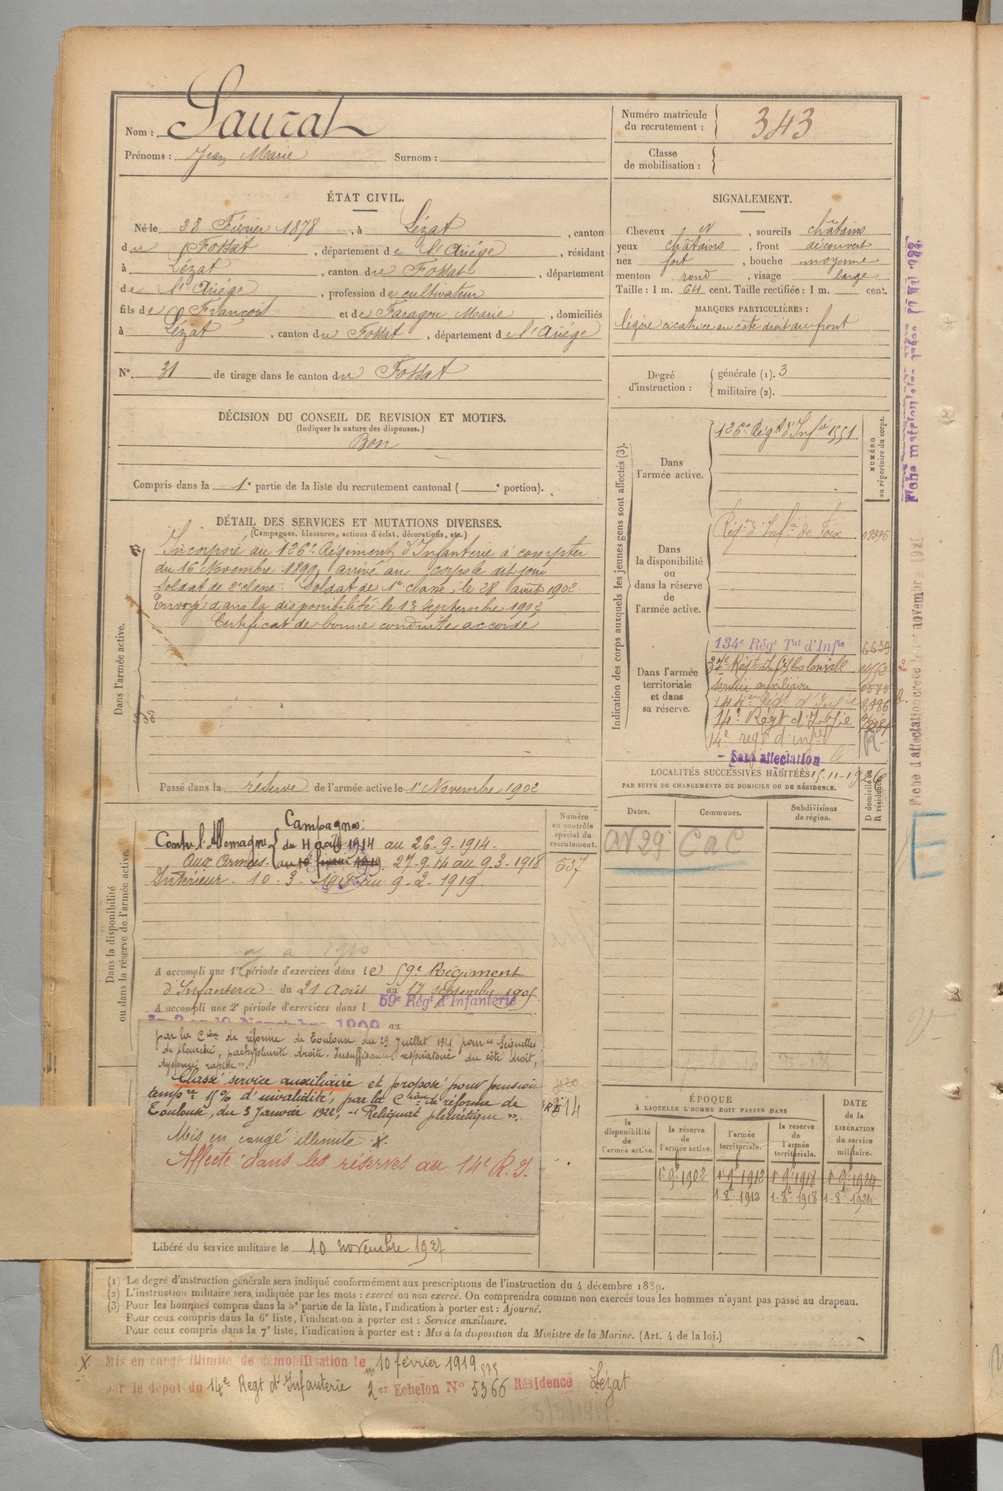 Nom : Sauzat
Prénoms : Jean Marie Surnom :
Numéro matricule du recrutement : 343
Classe de mobilisation :
ÉTAT CIVIL.
Né le 28 Février 1878, à Lézat, canton
du Fossat, département de l'Ariége, résidant
à Lézat, canton du Fossat, département
de l'Ariége, profession de cultivateur
fils de François et de Faragou Marie, domiciliés
à Lézat, canton du Fossat, département de l'Ariége
N° 31 de tirage dans le canton du Fossat
SIGNALEMENT.
Cheveux et, sourcils châtains
yeux châtains, front découvert
nez fort, bouche moyenne
menton rond, visage large
Taille : 1 m. 64 cent. Taille rectifiée : 1 m. cent.
MARQUES PARTICULIÈRES :
légère cicatrice au côté droit au front
Degré d'instruction : générale (1). 3
militaire (2).
DÉCISION DU CONSEIL DE REVISION ET MOTIFS.
(Indiquer la nature des dispenses.)
Bon
Compris dans la 1e partie de la liste du recrutement cantonal ( e portion).
DÉTAIL DES SERVICES ET MUTATIONS DIVERSES.
(Campagnes, blessures, actions d'éclat, décorations, etc.)
Dans l'armée active.
Incorporé au 126e Régiment d'Infanterie à compter
du 16 Novembre 1899, arrivé au corps le dit jour
soldat de 2e classe. Soldat de 1e classe, le 28 août 1902.
Envoyé dans la disponibilité le 13 Septembre 1902
Certificat de bonne conduite accordé
Passé dans la réserve de l'armée active le 1er Novembre 1902
Indication des corps auxquels les jeunes gens sont affectés (3).
NUMÉRO au répertoire du corps.
Dans l'armée active.
126e Régt d'Infie 1551
Dans la disponibilité ou dans la réserve de l'armée active.
Régt d'Infie de Foix
Dans l'armée territoriale et dans sa réserve.
134e Régt Tal d'Infie
Régt Inf Coloniale
service auxiliaire
14e Régt d'Infie
14e régt d'infie
Sans affectation
LOCALITÉS SUCCESSIVES HABITÉES
PAR SUITE DE CHANGEMENTS DE DOMICILE OU DE RÉSIDENCE.
Dates. Communes. Subdivisions de région. D domicile ou R résidence.
Av 29 CaC
E
Dans la disponibilité ou dans la réserve de l'armée active.
Numéro au contrôle spécial du recrutement.
537
Campagnes:
Contre l'Allemagne du 11 août 1914 au 26.9.1914.
Aux Armées. 27.9.14 au 9.3.1918
Intérieur. 10.3.1918 au 9.2.1919.
A accompli une 1re période d'exercices dans le 59e Régiment
d'Infanterie du 21 Août au 17 septembre 1905
A accompli une 2e période d'exercices dans l 59e Régt d'Infanterie
par la Cion de réforme de Toulouse du 29 Juillet 1921 pour « Séquelles
de pleurésie, pachypleurite droite. Insuffisance respiratoire du côté droit,
dyspnée rapide ».
Classé service auxiliaire et proposé pour pension
tempre 15% d'invalidité, par la Cion de réforme de
Toulouse, du 3 Janvier 1922, « Reliquat pleurétique ».
Mis en congé illimité X.
Affecté dans les réserves au 14e R.I.
Libéré du service militaire le 10 novembre 1927
ÉPOQUE
À LAQUELLE L'HOMME DOIT PASSER DANS
la disponibilité de l'armée active.
la réserve de l'armée active.
l'armée territoriale.
la réserve de l'armée territoriale.
DATE de la LIBÉRATION du service militaire.
1er 9bre 1902 1er 9bre 1912 1er 9bre 1918 1er 9bre 1924
1-8e 1912 1-8e 1918 1-8e 1924
(1) Le degré d'instruction générale sera indiqué conformément aux prescriptions de l'instruction du 4 décembre 1889.
(2) L'instruction militaire sera indiquée par les mots : exercé ou non exercé. On comprendra comme non exercés tous les hommes n'ayant pas passé au drapeau.
(3) Pour les hommes compris dans la 5e partie de la liste, l'indication à porter est : Ajourné.
Pour ceux compris dans la 6e liste, l'indication à porter est : Service auxiliaire.
Pour ceux compris dans la 7e liste, l'indication à porter est : Mis à la disposition du Ministre de la Marine. (Art. 4 de la loi.)
X Mis en congé illimité de démobilisation le 10 février 1919
par le dépôt du 14e Régt d'Infanterie 2e Echelon N° 5366 Résidence Lézat